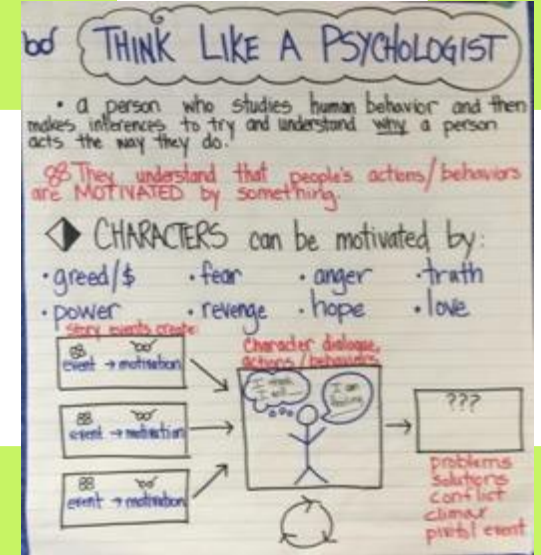 THINK LIKE A PSYCHOLOGIST
• a person who studies human behavior and then
makes inferences to try and understand why a person
acts the way they do.
They understand that people's actions/behaviors
are MOTIVATED by something.
CHARACTERS can be motivated by:
• greed/$ • fear • anger • truth
• power • revenge • hope • love
Story events create:
event → motivation
event → motivation
event → motivation
Character dialogue,
actions/behaviors
I think
I will
I am
feeling
???
problems
solutions
conflict
climax
pivotal event